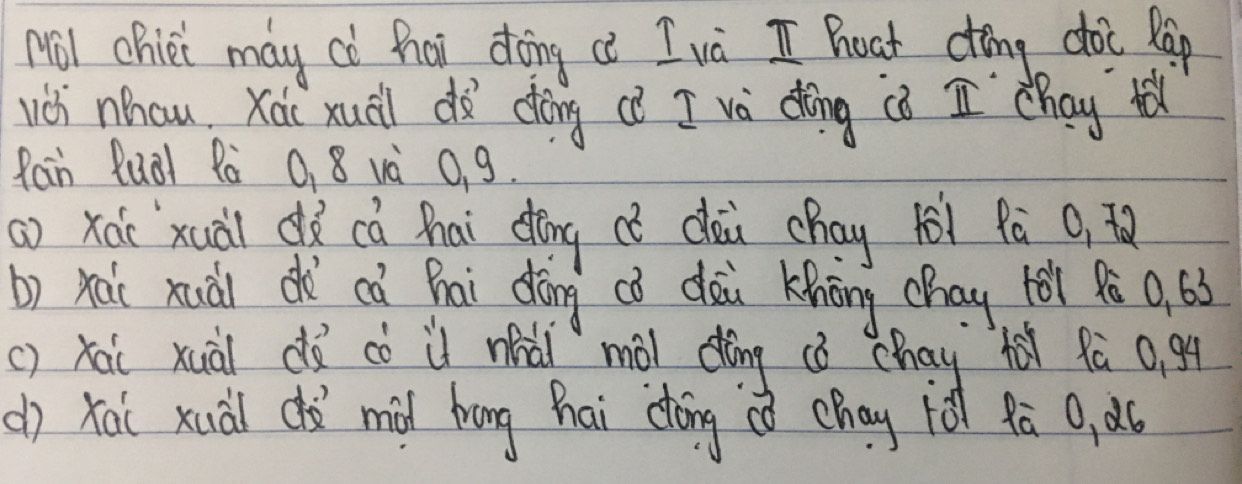 Một chiếc máy có hai động cơ I và II hoạt động độc lập
với nhau. Xác xuất để động cơ I và động cơ II chạy tốt
lần lượt là 0,8 và 0,9.
a) Xác xuất để cả hai động cơ đều chạy tốt là 0,72
b) Xác xuất để cả hai động cơ đều không chạy tốt là 0,63
c) Xác xuất để có ít nhất một động cơ chạy tốt là 0,94
d) Xác xuất để một trong hai động cơ chạy tốt là 0,26